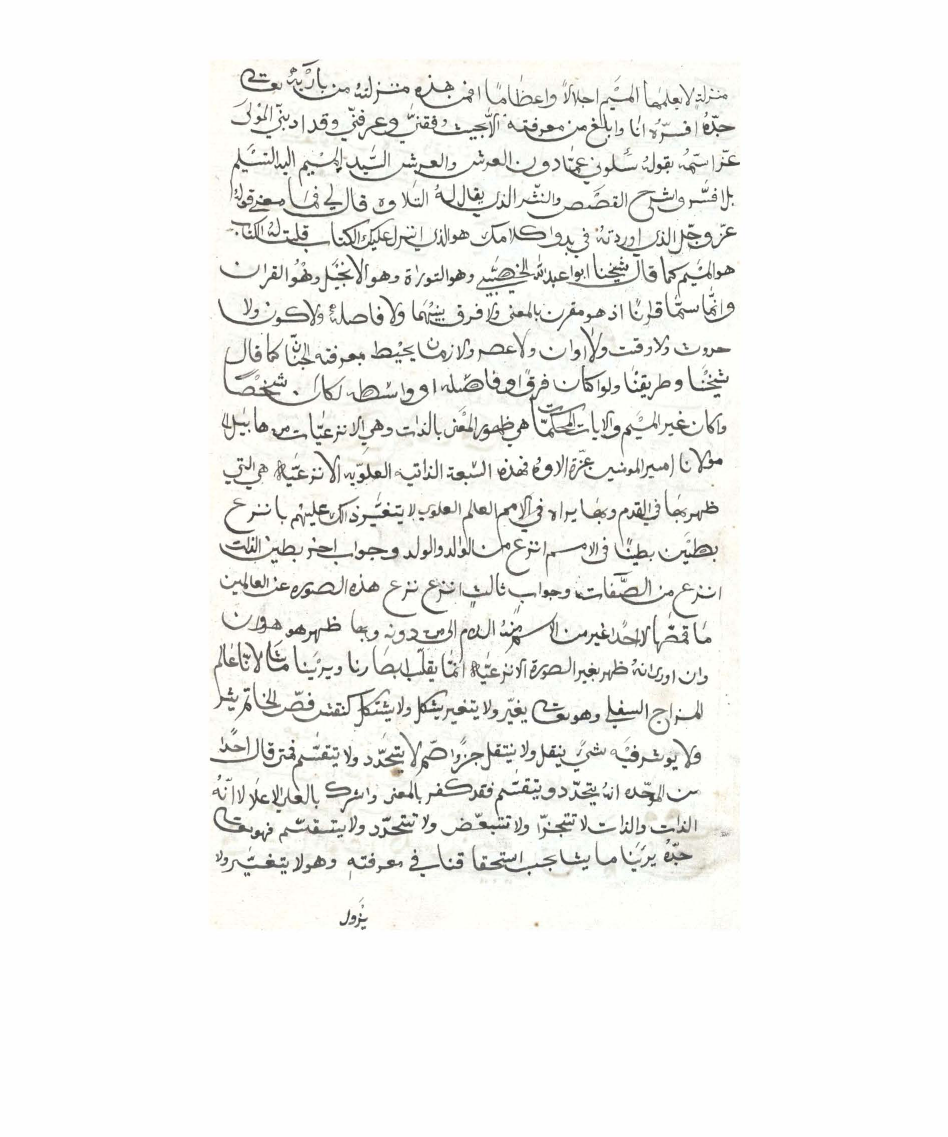 منزلة لا يعلمها الميم اجلالاً واعظاماً افمن هذه منزلته من باريه تعالى
جدّه افسّره انا وابلغ من معرفته الا بحيث وفقني وعرفني وقد ادبني المولى
عزّ اسمه بقوله سئلوني عمّا دون العرش والعرش السّيد الميم اليه التسليم
بل افسّر واشرح القصص والنثر الذي يقال له التلاوه قال لي فما معنى قوله
عزّ وجلّ الذي اوردته في بدوا كلامك هو الذي انزل عليك الكتاب قلت له الكتاب
هو الميم كما قال شيخنا ابوا عبدالله الخصيبي وهو التوراة وهو الانجيل وهو القران
وانّما سمّا قراناً اذ هو مقرن بالمعنى ولا فرق بينهما ولا فاصلة ولا كون ولا
حدوث ولا وقت ولا اوان ولا عصر ولا زمان يحيط معرفته الجنان كما قال
شيخنا وطريقنا ولوا كان فرقاً او فاصله او واسطه لكان شخصاً
وكان غير الميم والايات المحكمات هي ظهور المعنى بالذات وهي الانزعيات من هابيل الى
مولانا امير المومنين عزّة الاوه فهذه السبعة الذاتيه العلويه الانزعية هي التي
ظهر بها في القدم وبها يراه في الامم العالم العلوي لا يتغيّر ذالك عليهم بانزع
بطين بطيناً في الاسم انزع من الوالد والولد وجواب اخر بطين الذات
انزع من الصّفات وجواب ثالث انزع نزع هذه الصوره عن العالمين
ما قمصّها لاحداً غير من الاسم منه السلام الى من دونه وبها ظهر هو هو وان
وان اورى انه ظهر بغير الصورة الانزعية انما يقلّب ابصارنا ويرينا مثالاً لانّا عالم
المزاج السفلي وهو تعالى يغيّر ولا يتغير يشكل ولا يشتكل كنقش فصّ الخاتم يثر
ولا يوثر فيه شيء ينقل ولا ينتقل جزواً صم لا يتحدّد ولا يتقسّم فمتى قال احداً
من الموحّده انه يتحدّد ويتقسّم فقد كفر بالمعنى واشرك بالعلي الاعلا لا انّه
الذات والذات لا تتجزّا ولا تتبعّض ولا تتحدّد ولا يتقسّم فهو تعالى
جدّه يرينا ما يشا بحب استحقاقنا في معرفته وهو لا يتغيّر ولا
يزول